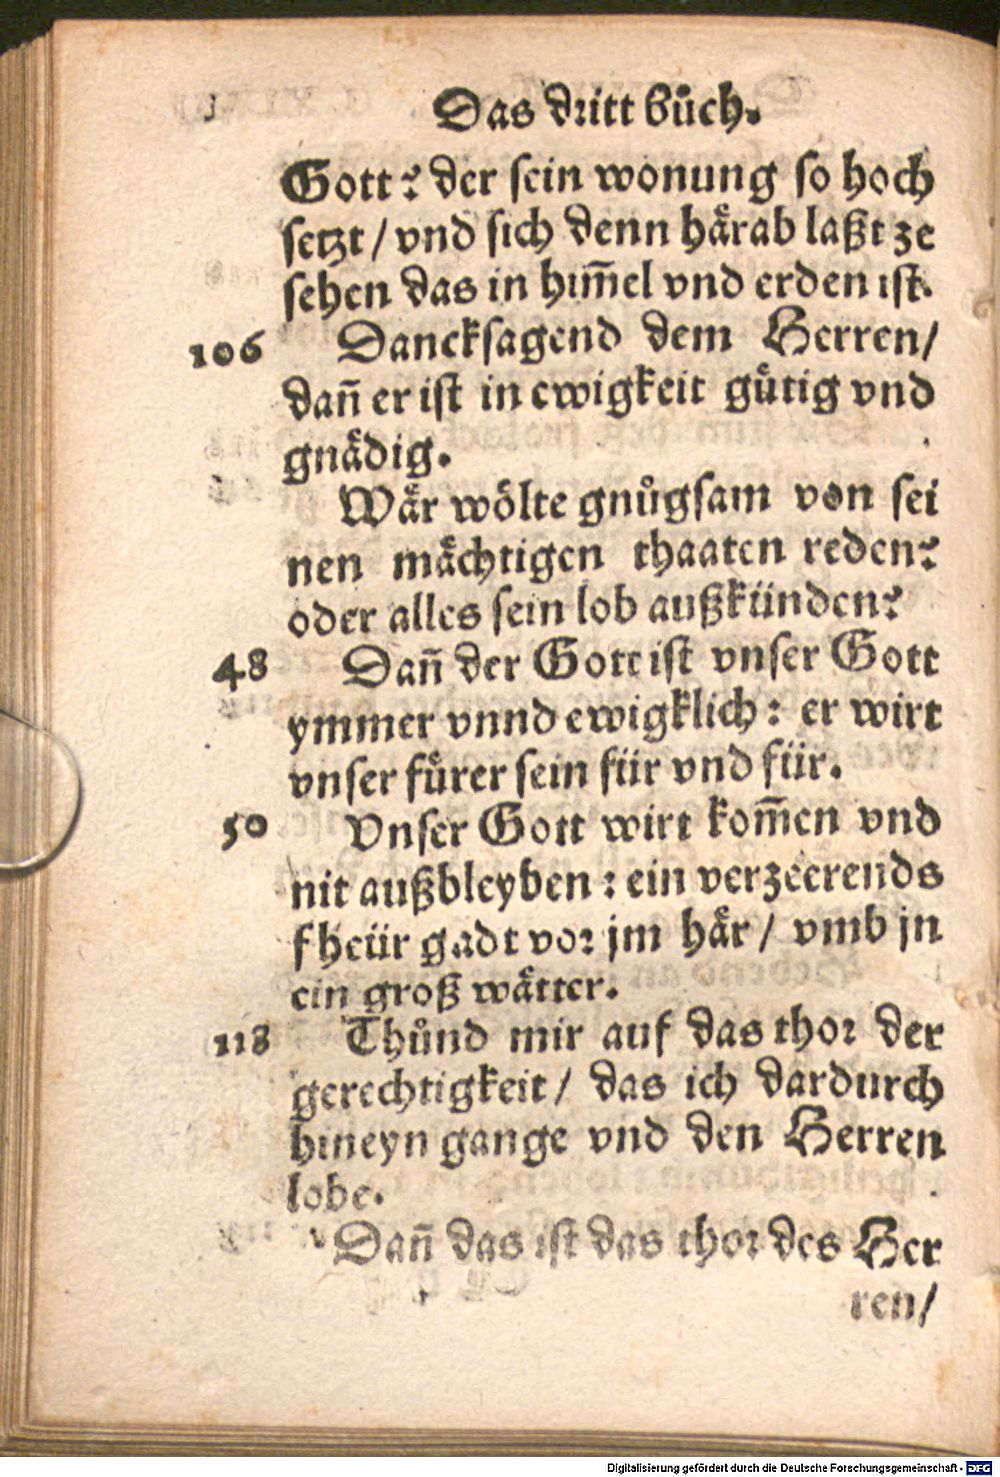 Das dritt bůch.
Gott? der sein wonung so hoch
setzt / vnd sich denn hårab laßt ze
sehen das in him̃el vnd erden ist.
106 Dancksagend dem Herren/
dañ er ist in ewigkeit gůtig vnd
gnådig.
Wår wölte gnůgsam von sei
nen måchtigen thaaten reden?
oder alles sein lob außkünden?
48 Dañ der Gott ist vnser Gott
ymmer vnnd ewigklich: er wirt
vnser fůrer sein für vnd für.
50 Vnser Gott wirt kom̃en vnd
nit außbleyben: ein verzeerends
fheür gadt vor jm hår / vmb jn
ein groß wåtter.
118 Thůnd mir auf das thor der
gerechtigkeit / das ich dardurch
hineyn gange vnd den Herren
lobe.
Dañ das ist das thor des Her
ren/
Digitalisierung gefördert durch die Deutsche Forschungsgemeinschaft - DFG